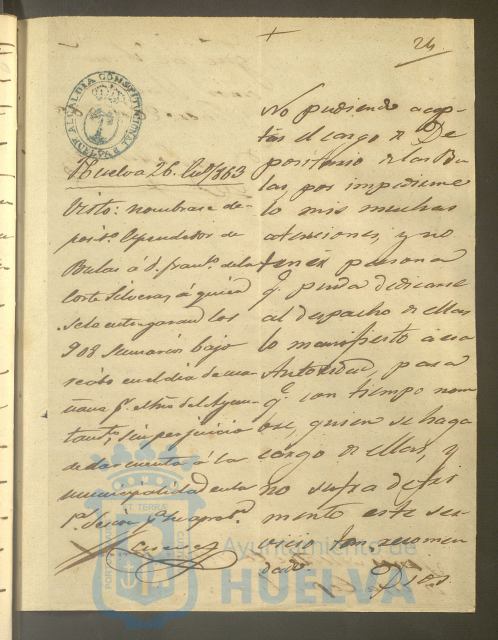 24
ALCALDIA CONSTITUCIONAL
HUELVA
Huelva 26. 1863
Visto: nombrase de-
posit.º Espendedor de
Bulas á d. Fran.co de la
Corte á quien
se le entregaran los
908 Sumarios bajo
recibo en el dia de ma-
ñana p.r el de el Ayun-
tam.to, sin perjuicio
de dar cuenta á la
municipalidad en la
1.ª sesion
No pudiendo acep-
tar el cargo de De
positario de las Bu
las, por impedirme
lo mis muchas
atenciones, y no
tener persona
q.e pueda dedicarse
al despacho de ellas
lo manifiesto á esa
Autoridad, para
q.e con tiempo nom
bre, quien se haga
cargo de ellas, y
no sufra detri
mento este ser-
vicio tan recomen
dado
Ayuntamiento de
HUELVA